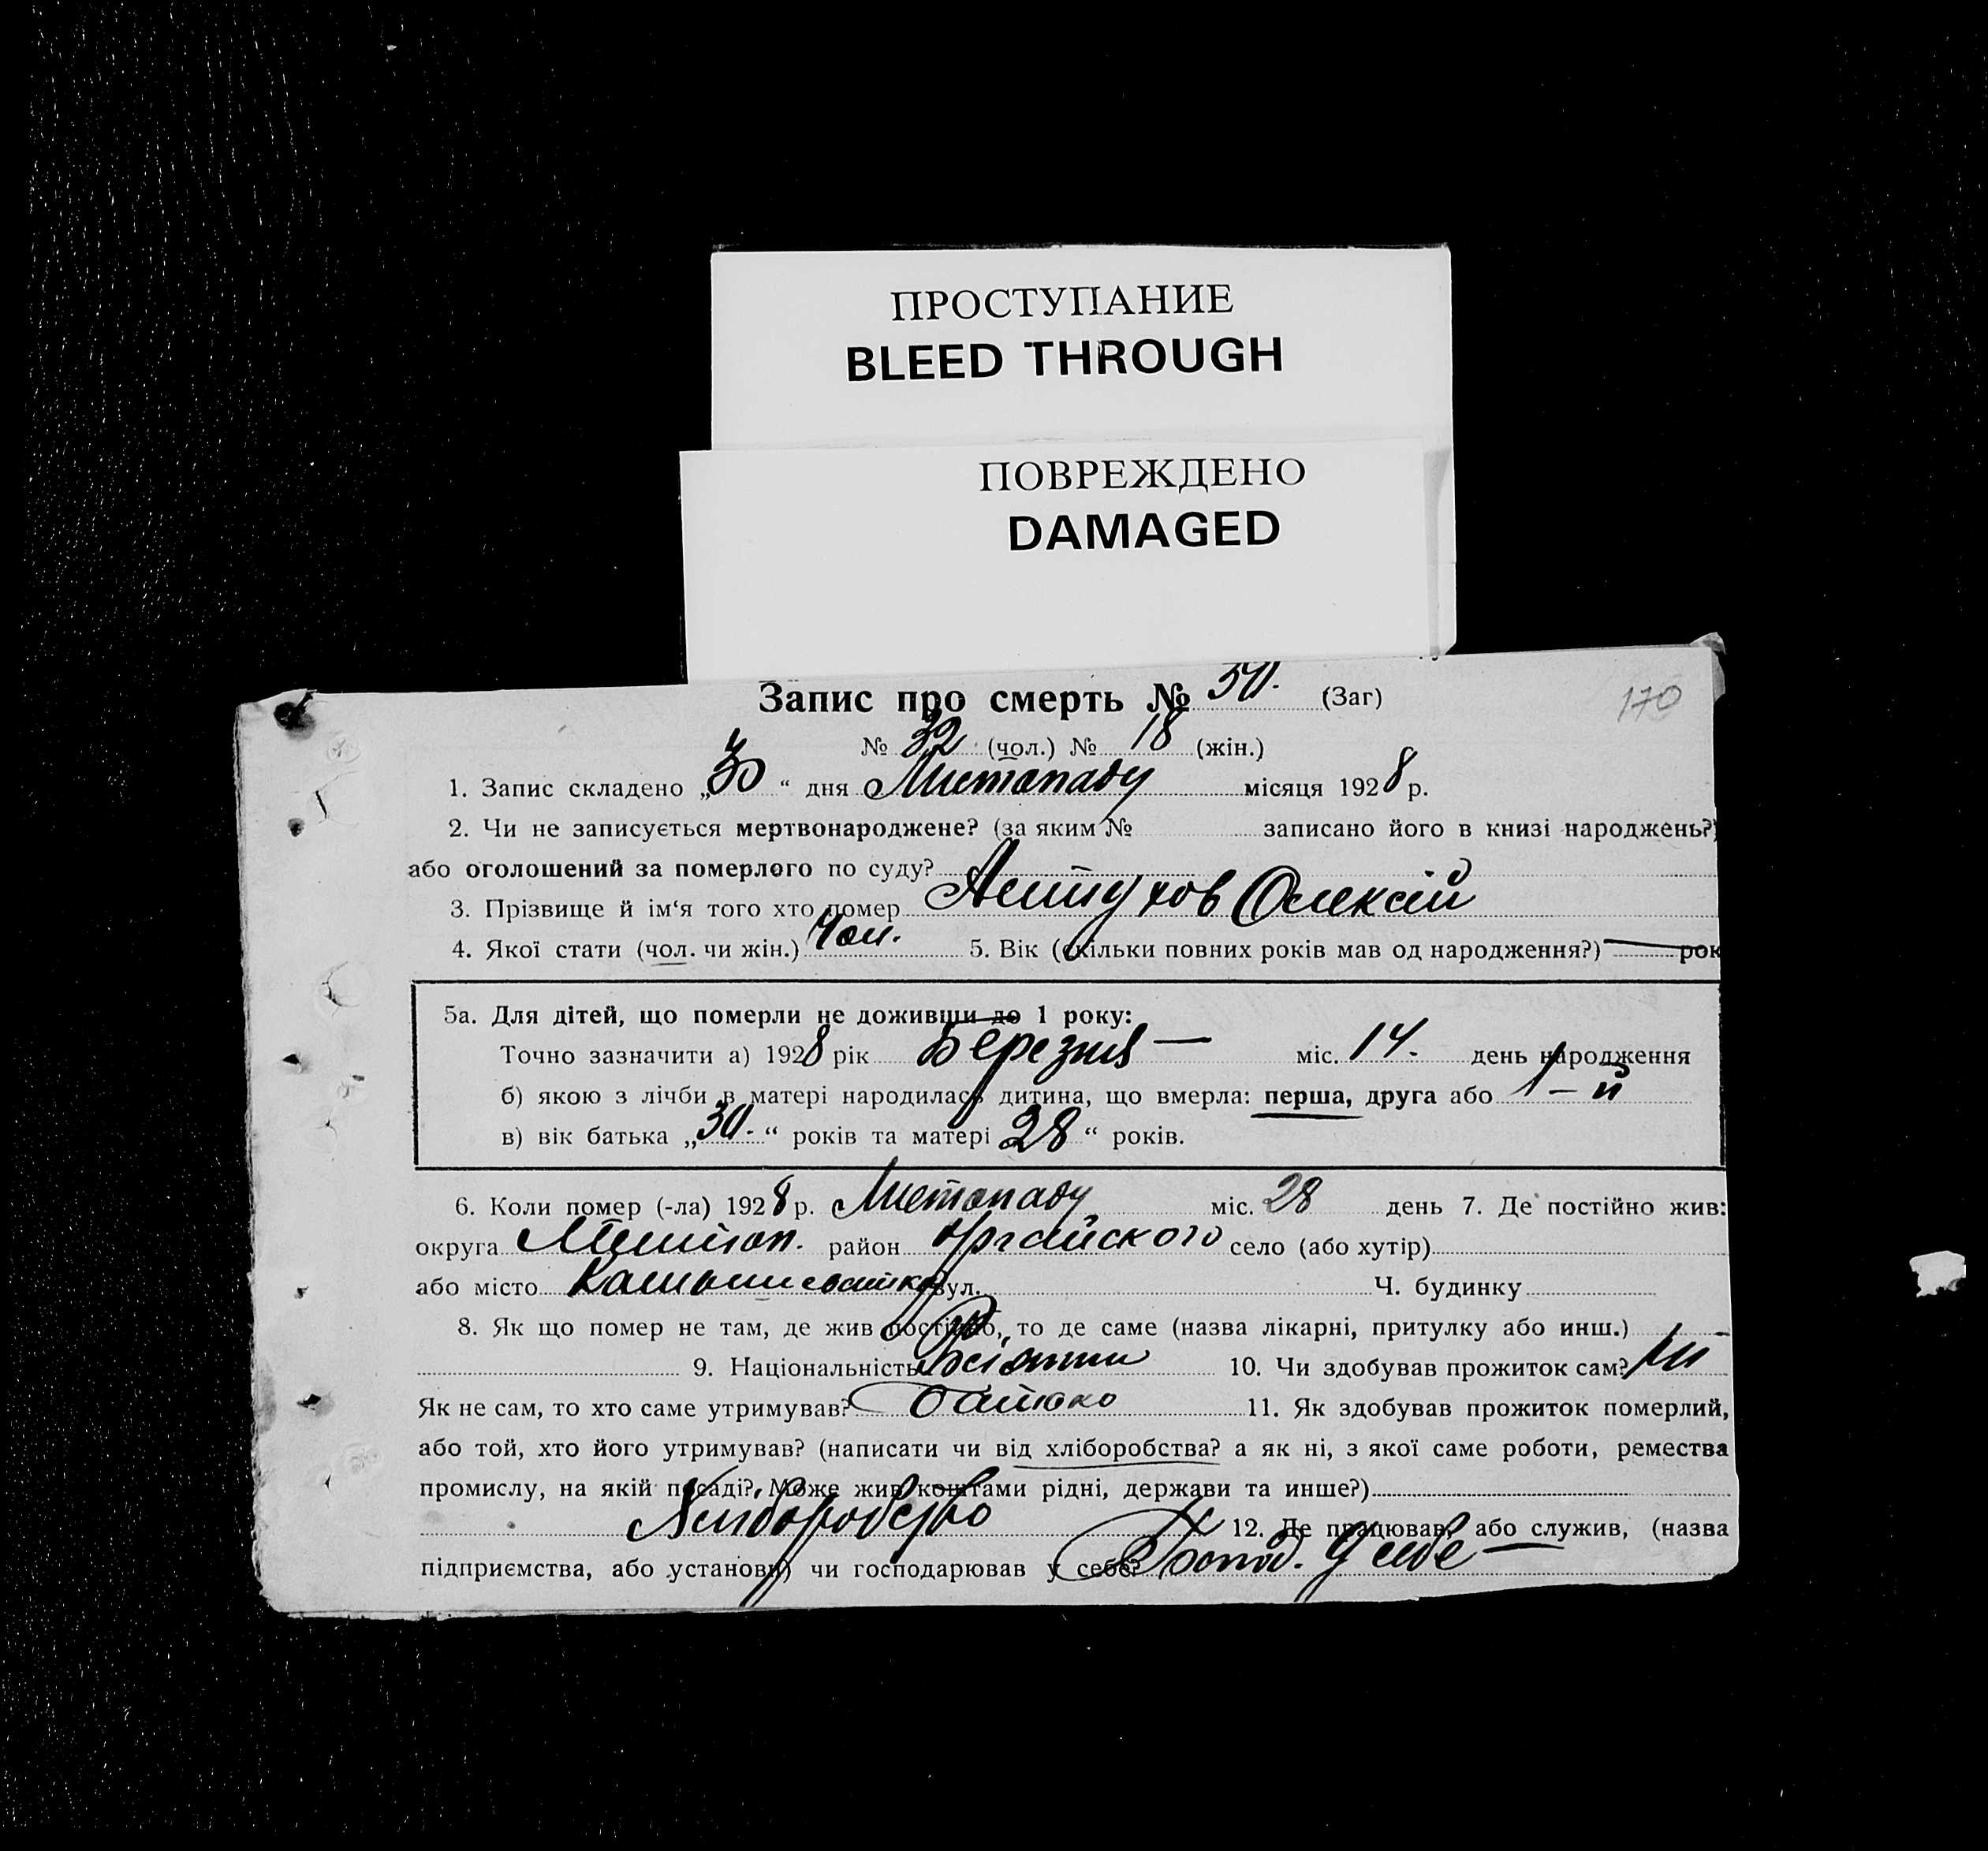 ПРОСТУПАНИЕ
BLEED THROUGH
ПОВРЕЖДЕНО
DAMAGED
170
Запис про смерть № 50. (Заг)
№ 32 (чол.) № 18 (жін.)
1. Запис складено „30“ дня Листопаду місяця 1928 р.
2. Чи не записується мертвонароджене? (за яким № записано його в книзі народжень?)
або оголошений за померлого по суду?
3. Прізвище й ім‘я того хто помер Олексій
4. Якої стати (чол. чи жін.) Чол. 5. Вік (скільки повних років мав од народження?) — рок
5а. Для дітей, що померли не доживши до 1 року:
Точно зазначити а) 1928 рік Березня — міс. 14. день народження
б) якою з лічби в матері народилась дитина, що вмерла: перша, друга або 1-й
в) вік батька „30.“ років та матері 28“ років.
6. Коли помер (-ла) 1928 р. Листопаду міс. 28 день 7. Де постійно жив:
округа район село (або хутір)
або місто вул. Ч. будинку
8. Як що померло не там, де жив постійно, то де саме (назва лікарні, притулку або инш.) —
9. Національність 10. Чи здобував прожиток сам? Ні
Як не сам, то хто саме утримував? Батько 11. Як здобував прожиток померлий,
або той, хто його утримував? (написати чи від хліборобства? а як ні, з якої саме роботи, ремества
промислу, на якій посаді? Може жив коштами рідні, держави та инше?)
Хліборобство 12. Де працював, або служив, (назва
підприємства, або установи) чи господарював у себе? Господ. У себе